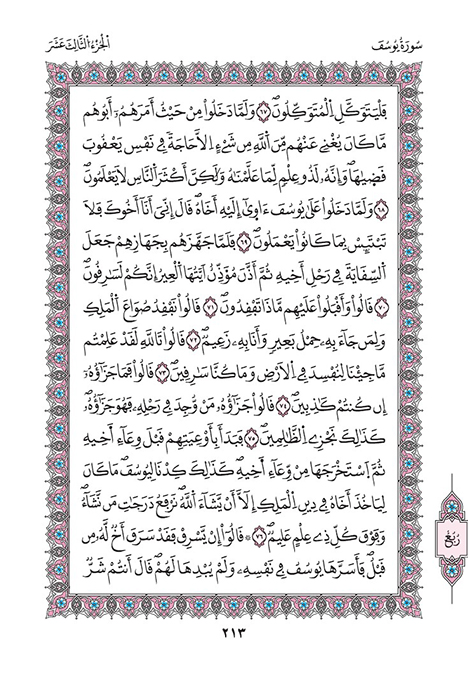 سُورَةُ يُوسُفَ
اَلْجُزْءُ الثَّالِثَ عَشَرَ
فَلْيَتَوَكَّلِ اِ۬لْمُتَوَكِّلُونَۖ ٦٧ وَلَمَّا دَخَلُواْ مِنْ حَيْثُ أَمَرَهُمُۥٓ أَبُوهُم
مَّا كَانَ يُغْنِے عَنْهُم مِّنَ اَ۬للَّهِ مِن شَےْءٍ اِلَّا حَاجَةٗ فِے نَفْسِ يَعْقُوبَ
قَض۪يٰهَاۖ وَإِنَّهُۥ لَذُو عِلْمٖ لِّمَا عَلَّمْنَٰهُ وَلَٰكِنَّ أَكْثَرَ اَ۬لنَّاسِ لَا يَعْلَمُونَۖ
٦٨ وَلَمَّا دَخَلُواْ عَلَىٰ يُوسُفَ ءَاو۪ىٰٓ إِلَيْهِ أَخَاهُۖ قَالَ إِنِّيَ أَنَآ أَخُوكَ فَلَا
تَبْتَئِسْ بِمَا كَانُواْ يَعْمَلُونَۖ ٦٩ فَلَمَّا جَهَّزَهُم بِجَهَازِهِمْ جَعَلَ
اَ۬لسِّقَايَةَ فِے رَحْلِ أَخِيهِ ثُمَّ أَذَّنَ مُؤَذِّنٌ اَيَّتُهَا اَ۬لْعِيرُ إِنَّكُمْ لَسَٰرِقُونَۖ
٧٠ قَالُواْ وَأَقْبَلُواْ عَلَيْهِم مَّاذَا تَفْقِدُونَۖ ٧١ قَالُواْ نَفْقِدُ صُوَاعَ اَ۬لْمَلِكِ
وَلِمَن جَآءَ بِهِۦ حِمْلُ بَعِيرٖ وَأَنَا بِهِۦ زَعِيمٞۖ ٧٢ قَالُواْ تَاللَّهِ لَقَدْ عَلِمْتُم
مَّا جِئْنَا لِنُفْسِدَ فِے اِ۬لْأَرْضِ وَمَا كُنَّا سَٰرِقِينَۖ ٧٣ قَالُواْ فَمَا جَزَٰٓؤُهُۥٓ
إِن كُنتُمْ كَٰذِبِينَۖ ٧٤ قَالُواْ جَزَٰٓؤُهُۥ مَنْ وُّجِدَ فِے رَحْلِهِۦ فَهُوَ جَزَٰٓؤُهُۥۖ
كَذَٰلِكَ نَجْزِے اِ۬لظَّٰلِمِينَۖ ٧٥ فَبَدَأَ بِأَوْعِيَتِهِمْ قَبْلَ وِعَآءِ اَ۬خِيهِ
ثُمَّ اَ۪سْتَخْرَجَهَا مِنْ وِّعَآءِ اَ۬خِيهِۖ كَذَٰلِكَ كِدْنَا لِيُوسُفَۖ مَا كَانَ
لِيَاخُذَ أَخَاهُ فِے دِينِ اِ۬لْمَلِكِ إِلَّآ أَنْ يَّشَآءَ اَ۬للَّهُۖ نَرْفَعُ دَرَجَٰتِ مَن نَّشَآءُۖ
وَفَوْقَ كُلِّ ذِے عِلْمٍ عَلِيمٞۖ ٧٦ ۞ قَالُوٓاْ إِنْ يَّسْرِقْ فَقَدْ سَرَقَ أَخٞ لَّهُۥ مِن
قَبْلُۖ فَأَسَرَّهَا يُوسُفُ فِے نَفْسِهِۦ وَلَمْ يُبْدِهَا لَهُمْۖ قَالَ أَنتُمْ شَرّٞ
رُبُعٌ
٢١٣